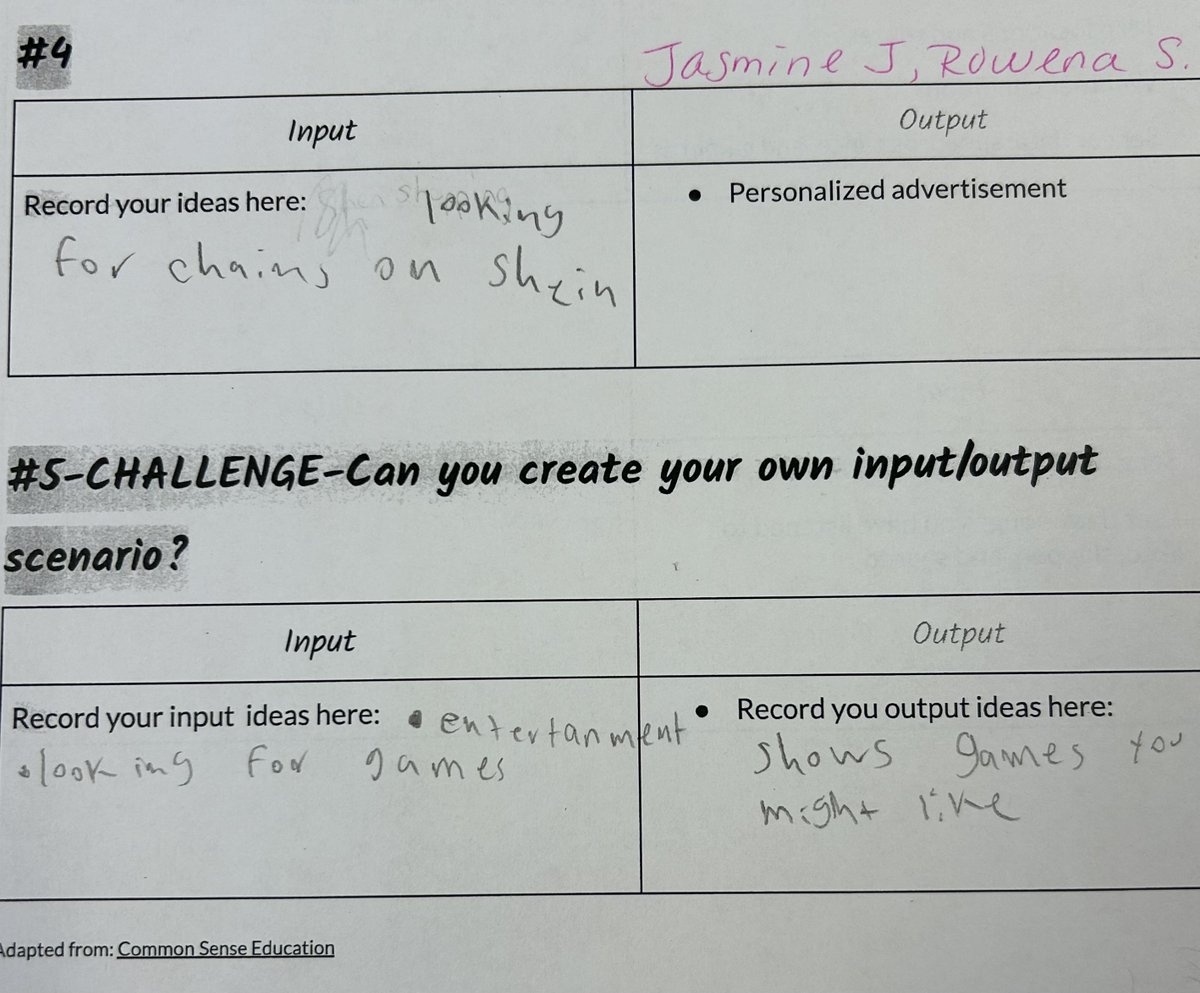 #4
Jasmine J, Rowena S.
Input
Output
Record your ideas here: looking
for chains on shein
• Personalized advertisement
#5-CHALLENGE-Can you create your own input/output
scenario?
Input
Output
Record your input ideas here: • entertanment
• looking for games
• Record you output ideas here:
shows games you
might like
Adapted from: Common Sense Education